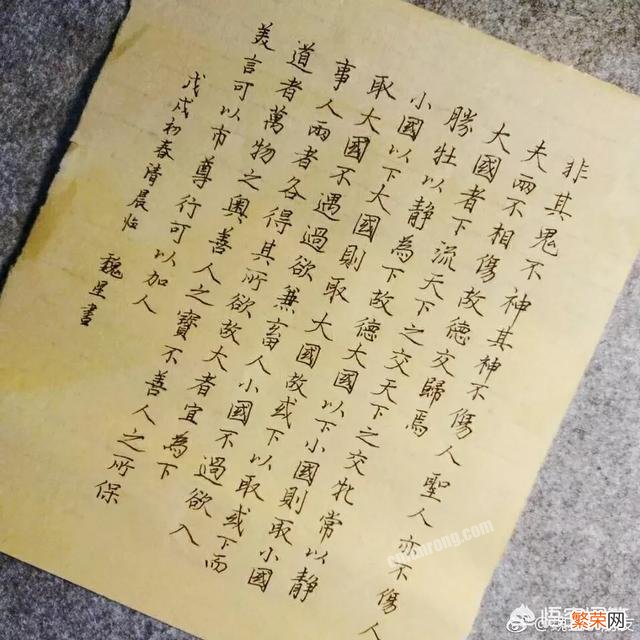 非其鬼不神其神不傷人聖人亦不傷人
夫兩不相傷故德交歸焉
大國者下流天下之交天下之交牝常以靜
勝牡以靜為下故德大國以下小國則取小國
小國以下大國則取大國故或下以取或下而
取大國不遇過欲兼畜人小國不過欲入
事人兩者各得其所欲故大者宜為下
道者萬物之奧善人之寶不善人之所保
美言可以市尊行可以加人
戊戌初春清晨临 魏星書
繁荣网